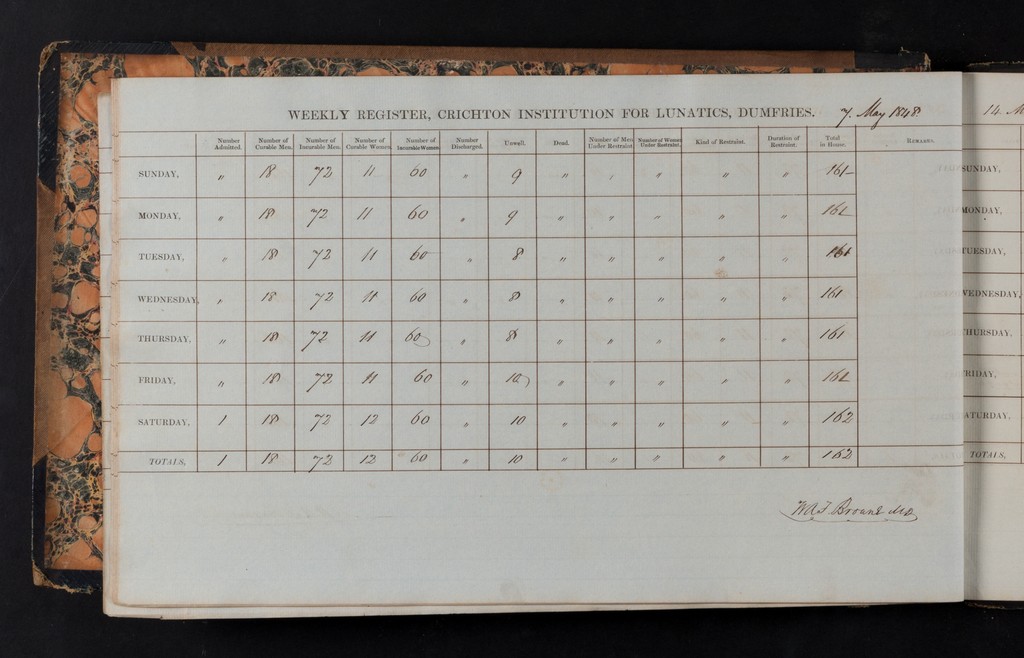 WEEKLY REGISTER, CRICHTON INSTITUTION FOR LUNATICS, DUMFRIES. 7. May 1848.
Number Admitted. Number of Curable Men. Number of Incurable Men. Number of Curable Women. Number of Incurable Women Number Discharged. Unwell. Dead. Number of Men Under Restraint Number of Women Under Restraint. Kind of Restraint. Duration of Restraint. Total in House. Remarks.
SUNDAY, " 18 72 11 60 " 9 " " " " " 161
MONDAY, " 18 72 11 60 " 9 " " " " " 161
TUESDAY, " 18 72 11 60 " 8 " " " " " 161
WEDNESDAY, " 18 72 11 60 " 8 " " " " " 161
THURSDAY, " 18 72 11 60 " 8 " " " " " 161
FRIDAY, " 18 72 11 60 " 10 " " " " " 161
SATURDAY, 1 18 72 12 60 " 10 " " " " " 162
TOTALS, 1 18 72 12 60 " 10 " " " " " 162
W.A.F. Browne M.D.
14. M
SUNDAY,
MONDAY,
TUESDAY,
WEDNESDAY,
THURSDAY,
FRIDAY,
SATURDAY,
TOTALS,